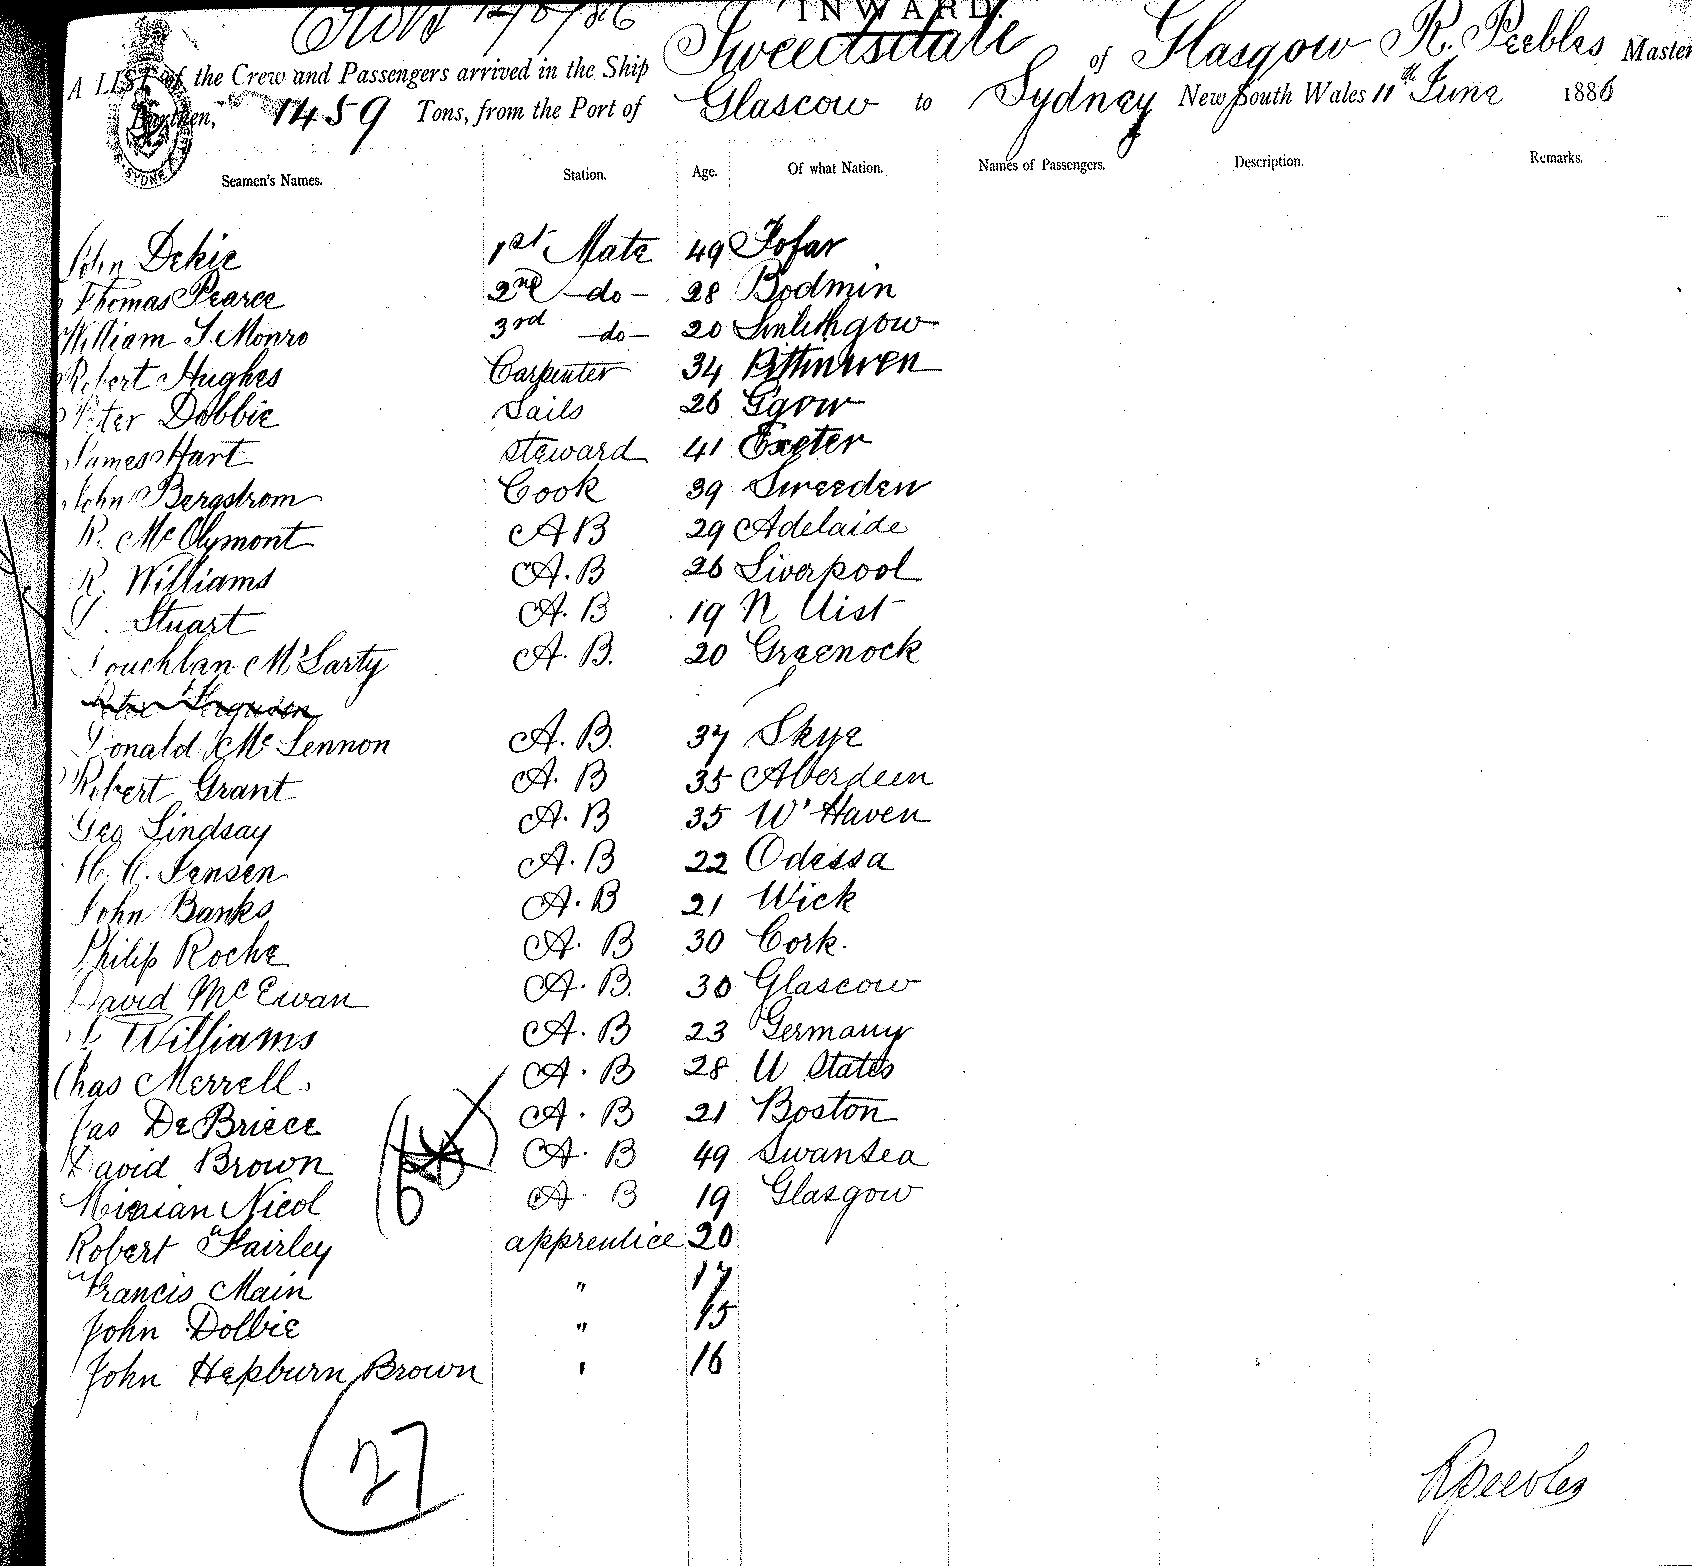 INWARD.
A LIST of the Crew and Passengers arrived in the Ship of Glasgow R. Peebles Master
Burthen, 1459 Tons, from the Port of Glascow to Sydney New South Wales 11th June 1886
Seamen's Names. Station. Age. Of what Nation. Names of Passengers. Description. Remarks.
John Dekie 1st Mate 49 Fofar
Thomas Pearce 2nd -do- 28 Bodmin
William J. Monro 3rd -do- 20 Linlithgow
Robert Hughes Carpenter 34
Peter Dobbie Sails 26 Ggow
James Hart steward 41 Exeter
John Bergstrom Cook 39 Sweeden
R. McClymont AB 29 Adelaide
R. Williams A.B 26 Liverpool
Stuart A.B 19 N Uist
Louchlan McLarty A.B. 20 Greenock
Peter Ferguson
Donald McLennon A.B. 37 Skye
Robert Grant A.B 35 Aberdeen
Geo Lindsay A.B 35 W'Haven
H. C. Jensen A.B 22 Odessa
John Banks A.B 21 Wick
Philip Roche A.B 30 Cork.
David McEwan A.B. 30 Glascow
Williams A.B 23 Germany
Chas Merrell A.B 28 U States
Jas DeBriece A.B 21 Boston
David Brown A.B 49 Swansea
Nicol A B 19 Glasgow
Robert Fairley apprentice 20
Francis Main " 17
John Dolbie " 15
John Hepburn Brown " 16
27
R Peebles